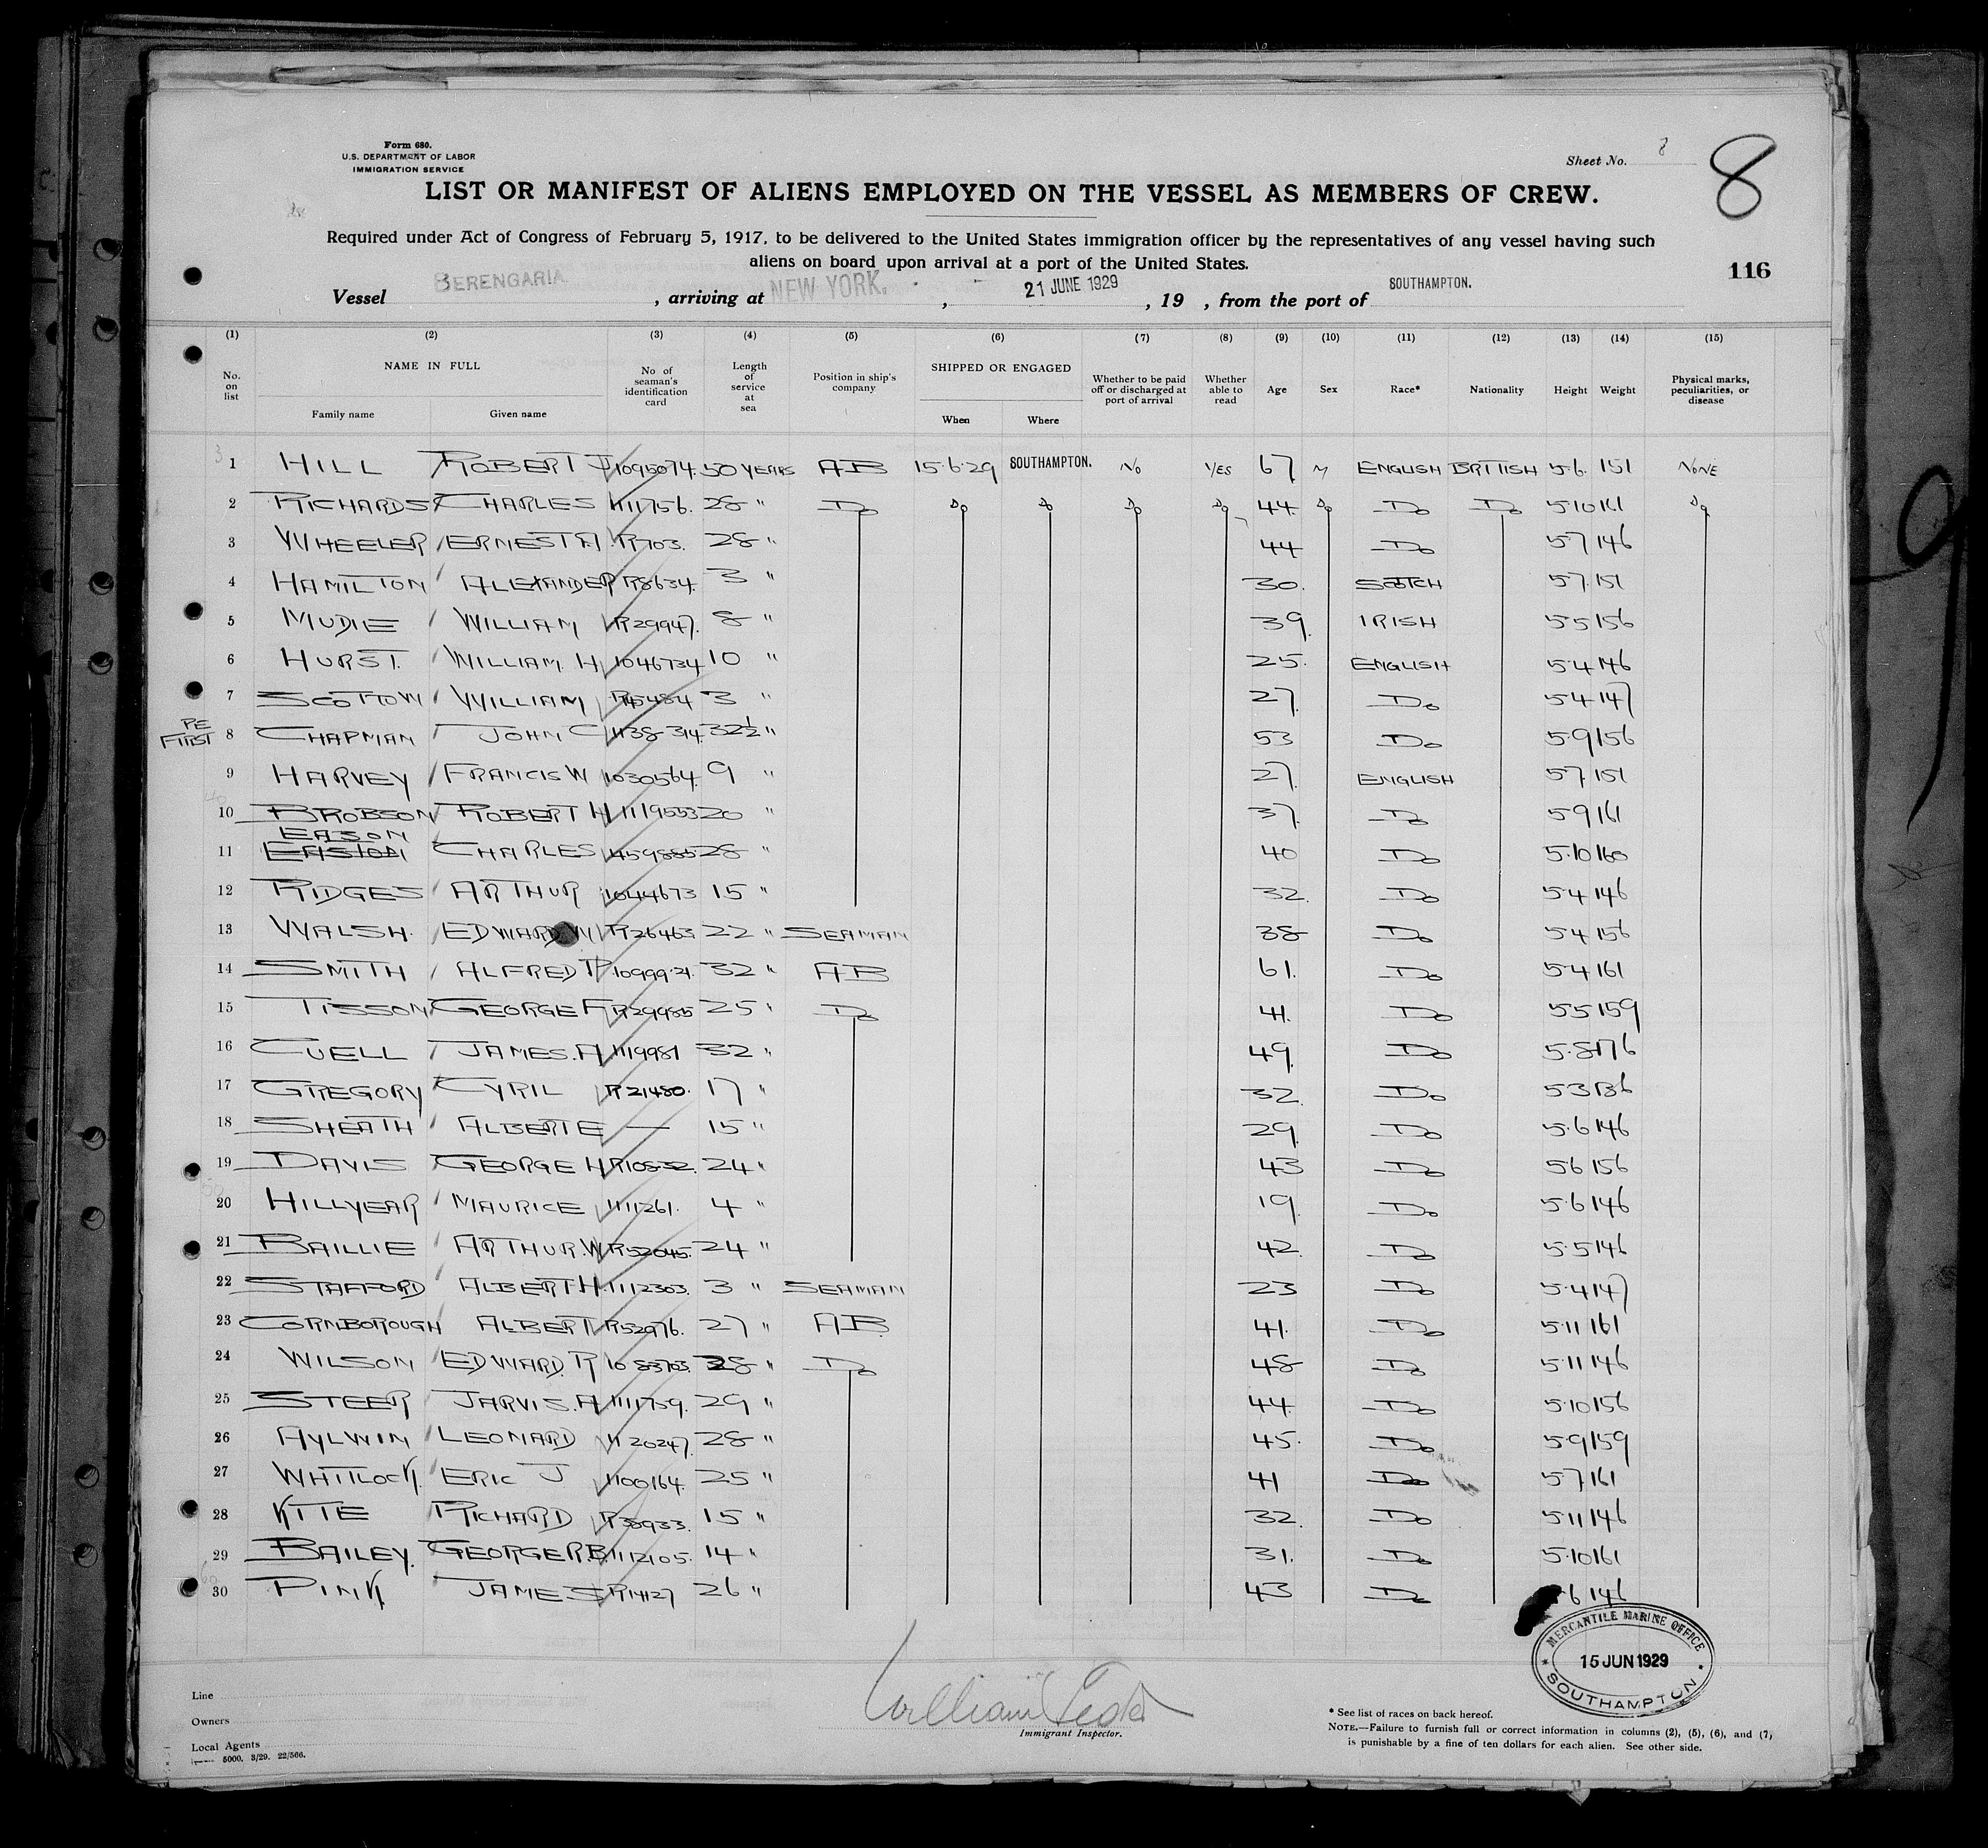 Form 680.
U.S. DEPARTMENT OF LABOR
IMMIGRATION SERVICE
Sheet No. 8
8
LIST OR MANIFEST OF ALIENS EMPLOYED ON THE VESSEL AS MEMBERS OF CREW.
Required under Act of Congress of February 5, 1917, to be delivered to the United States immigration officer by the representatives of any vessel having such
aliens on board upon arrival at a port of the United States.
116
Vessel BERENGARIA, arriving at NEW YORK. , 21 JUNE 1929 , 19 , from the port of SOUTHAMPTON.
(1) (2) (3) (4) (5) (6) (7) (8) (9) (10) (11) (12) (13) (14) (15)
No. on list NAME IN FULL Family name Given name No of seaman's identification card Length of service at sea Position in ship's company SHIPPED OR ENGAGED When Where Whether to be paid off or discharged at port of arrival Whether able to read Age Sex Race* Nationality Height Weight Physical marks, peculiarities, or disease
1 HILL ROBERT J 1095074. 50 YEARS AB 15.6.29 SOUTHAMPTON. No YES 67 M ENGLISH BRITISH 5.6. 151 NONE
2 RICHARDS CHARLES 1111756. 28 " Do Do Do Do Do 44 Do Do Do 5.10 161 Do
3 WHEELER ERNEST A. R703. 28 " 44 Do 5.7 146
4 HAMILTON ALEXANDER R8634. 3 " 30. SCOTCH 5.7 151
5 MUDIE WILLIAM R29947. 8 " 39. IRISH 5.5 156
6 HURST. WILLIAM. H 1046734 10 " 25. ENGLISH 5.4 146
7 SCOTTOW WILLIAM R45484 3 " 27. Do 5.4 147
RE FIRST 8 CHAPMAN JOHN C 1138314. 32½ " 53 Do 5.9 156
9 HARVEY FRANCIS W 1030564. 9 " 27. ENGLISH 5.7 151
10 BROBSON ROBERT H 1119553 20 " 37. Do 5.9 161
EASON
11 EASTON CHARLES 459885 28 " 40 Do 5.10 160
12 RIDGES ARTHUR 1044673 15 " 32. Do 5.4 146
13 WALSH. EDWARD W R26463 22 " SEAMAN 38 Do 5.4 156
14 SMITH ALFRED P 1099921. 32 " AB 61. Do 5.4 161
15 TISSON GEORGE F R29985 25 " Do 41. Do 5.5 159
16 CUELL JAMES. A 1119981 32 " 49. Do 5.8 176
17 GREGORY CYRIL R21480. 17 " 32. Do 5.3 136
18 SHEATH ALBERT E — 15 " 29. Do 5.6 146
19 DAVIS GEORGE H R10832. 24 " 43 Do 5.6 156
20 HILLYEAR MAURICE 1111261. 4 " 19. Do 5.6 146
21 BAILLIE ARTHUR. W R52045. 24 " 42. Do 5.5 146
22 STAFFORD ALBERT H. 1112303. 3 " SEAMAN 23 Do 5.4 147
23 CORNBOROUGH ALBERT R52976. 27 " AB. 41. Do 5.11 161
24 WILSON EDWARD. R 1083703. 28 " Do 48 Do 5.11 146
25 STEER JARVIS. A 1111759. 29 " 44. Do 5.10 156
26 AYLWIN LEONARD 1120247. 28 " 45. Do 5.9 159
27 WHITLOCK. ERIC J 1100164. 25 " 41 Do 5.7 161
28 KITE RICHARD R38933. 15 " 32. Do 5.11 146
29 BAILEY. GEORGE R.B. 1112105. 14 " 31. Do 5.10 161
30 PINK JAMES R14127 26 " 43 Do 6 146
MERCANTILE MARINE OFFICE
15 JUN 1929
SOUTHAMPTON
Line
Owners
Local Agents
5000. 3/29. 22/566.
William
Immigrant Inspector.
* See list of races on back hereof.
NOTE.—Failure to furnish full or correct information in columns (2), (5), (6), and (7)
is punishable by a fine of ten dollars for each alien. See other side.